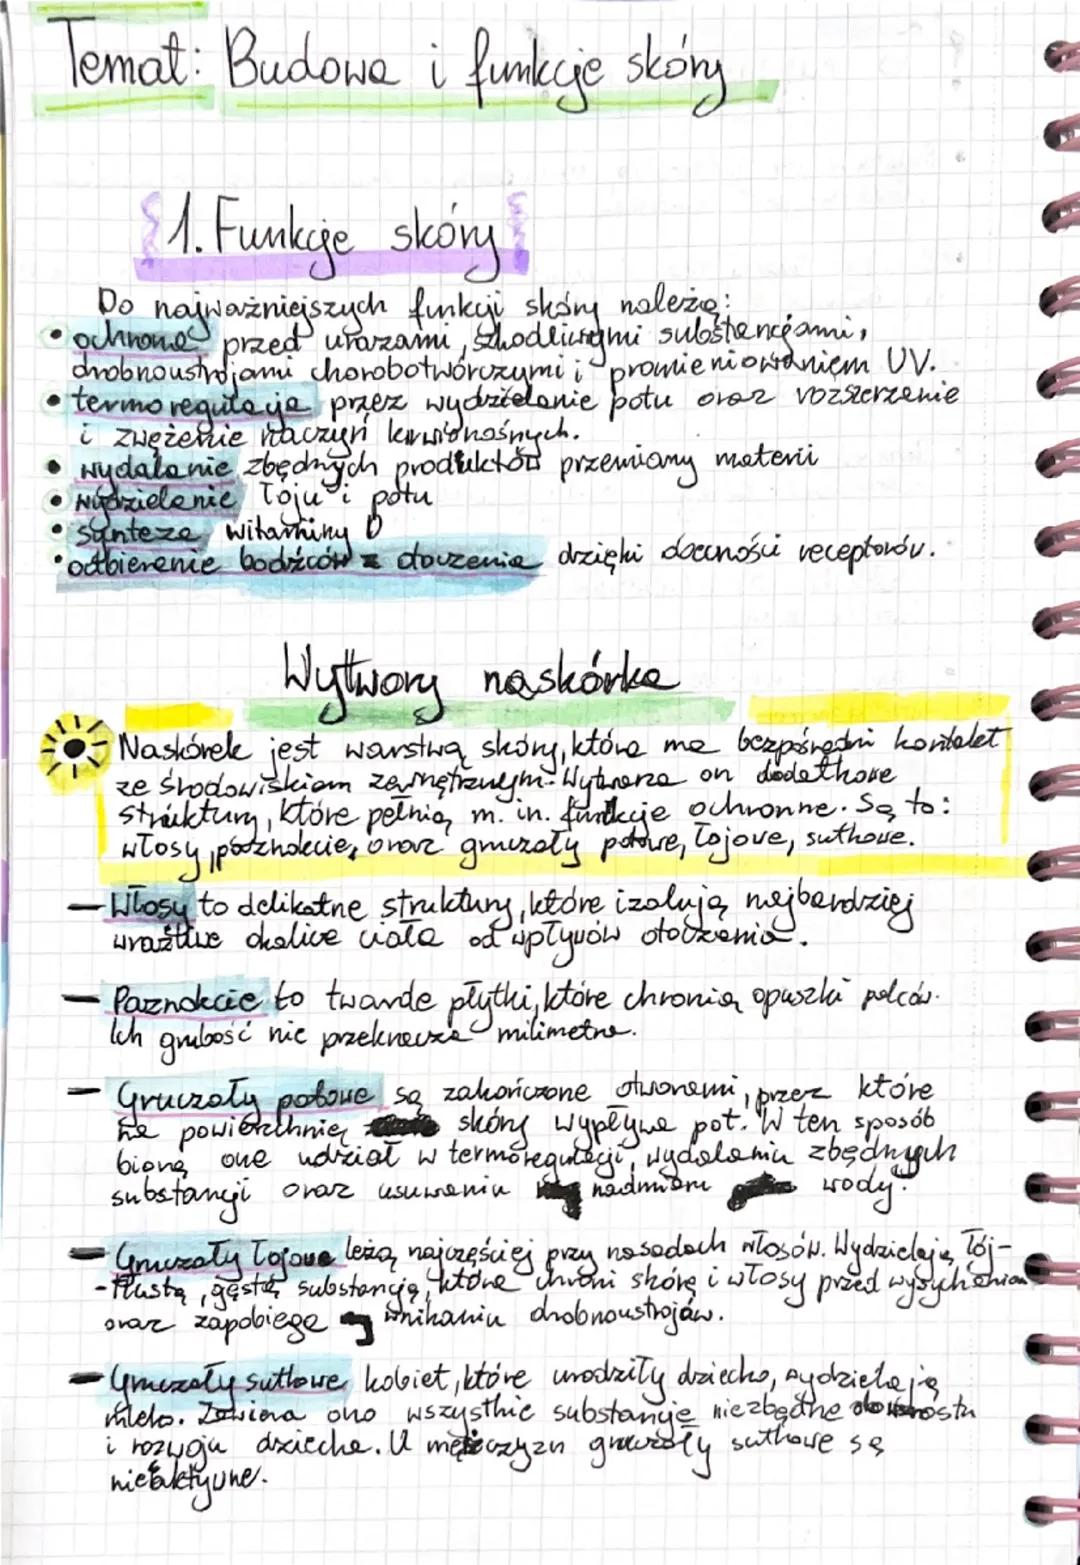 Temat: Budowa i funkcje skóry
1. Funkcje skóry
Do najważniejszych funkcji skóry należą:
• ochrona przed urazami, szkodliwymi substancjami,
drobnoustrojami chorobotwórczymi i promieniowaniem UV.
• termoregulacja przez wydzielanie potu oraz rozszerzanie
i zwężenie naczyń krwionośnych.
• wydalanie zbędnych produktów przemiany materii
• wydzielanie łoju i potu
• synteza witaminy D
• odbieranie bodźców z otoczenia dzięki obecności receptorów.
Wytwory naskórka
Naskórek jest warstwą skóry, która ma bezpośredni kontakt
ze środowiskiem zewnętrznym. Wytwarza on dodatkowe
struktury, które pełnią m. in. funkcje ochronne. Są to:
włosy, paznokcie, oraz gruczoły potowe, łojowe, sutkowe.
— Włosy to delikatne struktury, które izolują najbardziej
wrażliwe okolice ciała od wpływów otoczenia.
— Paznokcie to twarde płytki, które chronią opuszki palców.
Ich grubość nie przekracza milimetra.
— Gruczoły potowe są zakończone otworami, przez które
na powierzchnię skóry wypływa pot. W ten sposób
biorą one udział w termoregulacji, wydalaniu zbędnych
substancji oraz usuwaniu nadmiaru wody.
— Gruczoły łojowe leżą najczęściej przy nasadach włosów. Wydzielają łój-
-tłustą, gęstą substancją, która chroni skórę i włosy przed wysychaniem
oraz zapobiega wnikaniu drobnoustrojów.
— Gruczoły sutkowe kobiet, które urodziły dziecko, wydzielają
mleko. Zawiera ono wszystkie substancje niezbędne do wzrostu
i rozwoju dziecka. U mężczyzn gruczoły sutkowe są
nieaktywne.